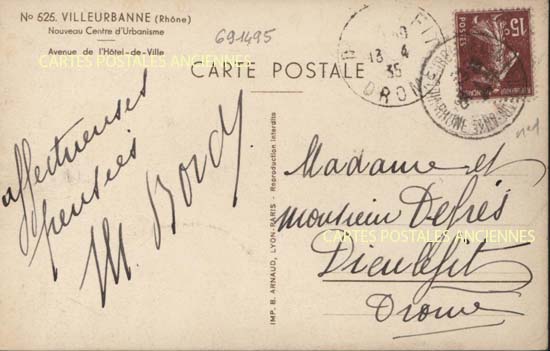 No 525. VILLEURBANNE (Rhône)
Nouveau Centre d'Urbanisme
Avenue de l'Hôtel-de-Ville
691495
CARTE POSTALE
13 4
35
DROME
15c
affectueuses
pensées
M. Bordy.
IMP. B. ARNAUD, LYON-PARIS - Reproduction Interdite
Madame et
monsieur Defrés
Dieulefit
Drome
CARTES POSTALES ANCIENNES
CARTES POSTALES ANCIENNES